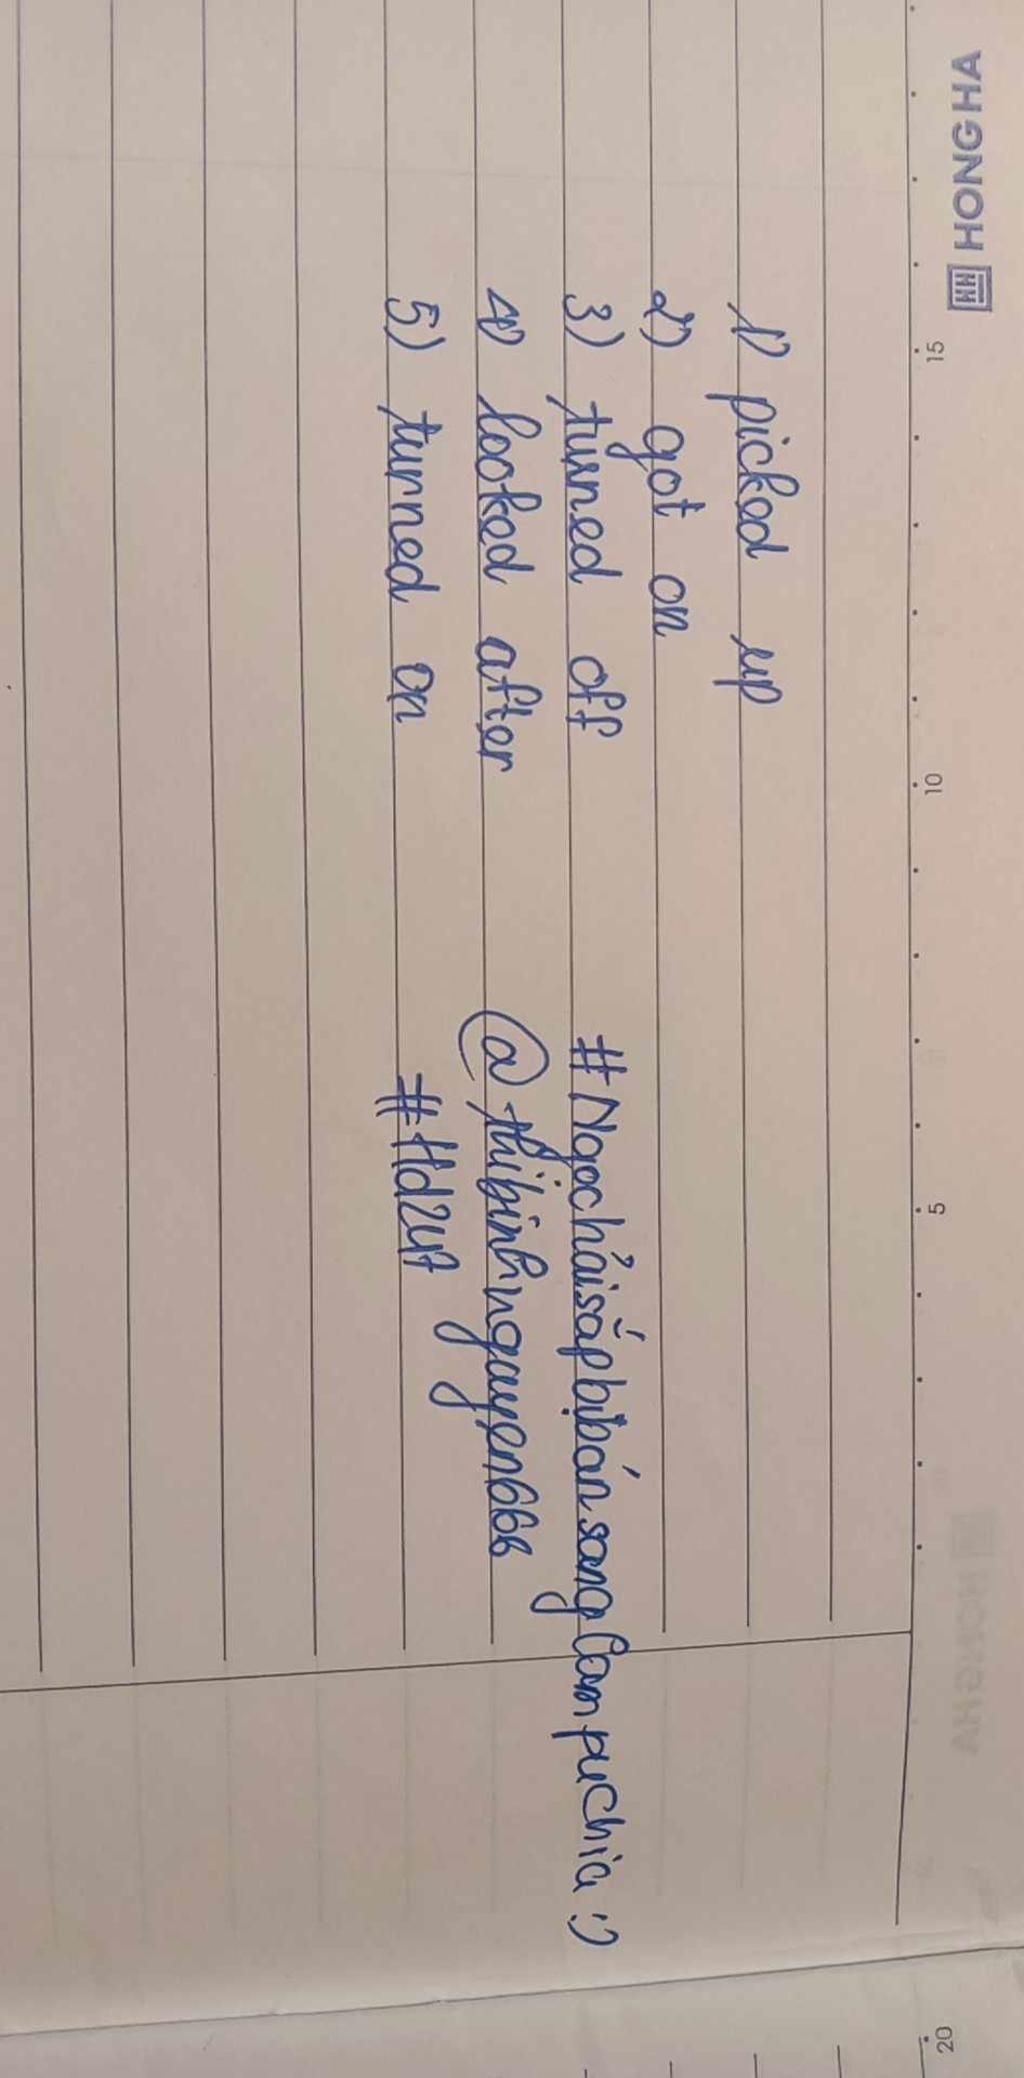 HONG HA
15 10 5 20
1) picked up
2) got on
3) turned off #Ngọchảisắpbịbánsang Campuchia :)
4) looked after @thibinhngayen666
5) turned on #Hd247